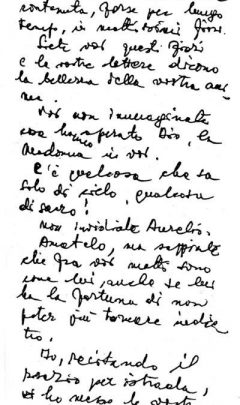 contenuta, forse per lungo
tempo, in molti
Siete voi questi fiori
e le vostre lettere dicono
la bellezza della vostra ani-
ma.
Voi non immaginate
cosa ha operato Dio, la
Madonna in voi.
C'è qualcosa che sa
solo di cielo, qualcosa
di sacro!
Non invidiate Aurelio.
Amatelo, ma sappiate
che fra voi molti sono
come lui, anche se lui
ha la fortuna di non
poter più tornare indie
tro.
Io, recitando il
per strada,
vi ho messo le vostre